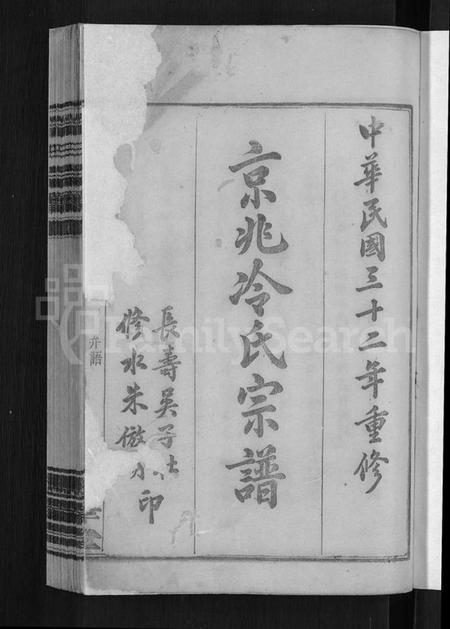 中華民國三十二年重修
京兆冷氏宗譜
長壽吳子
修水朱倣
印
弁語
FamilySearch